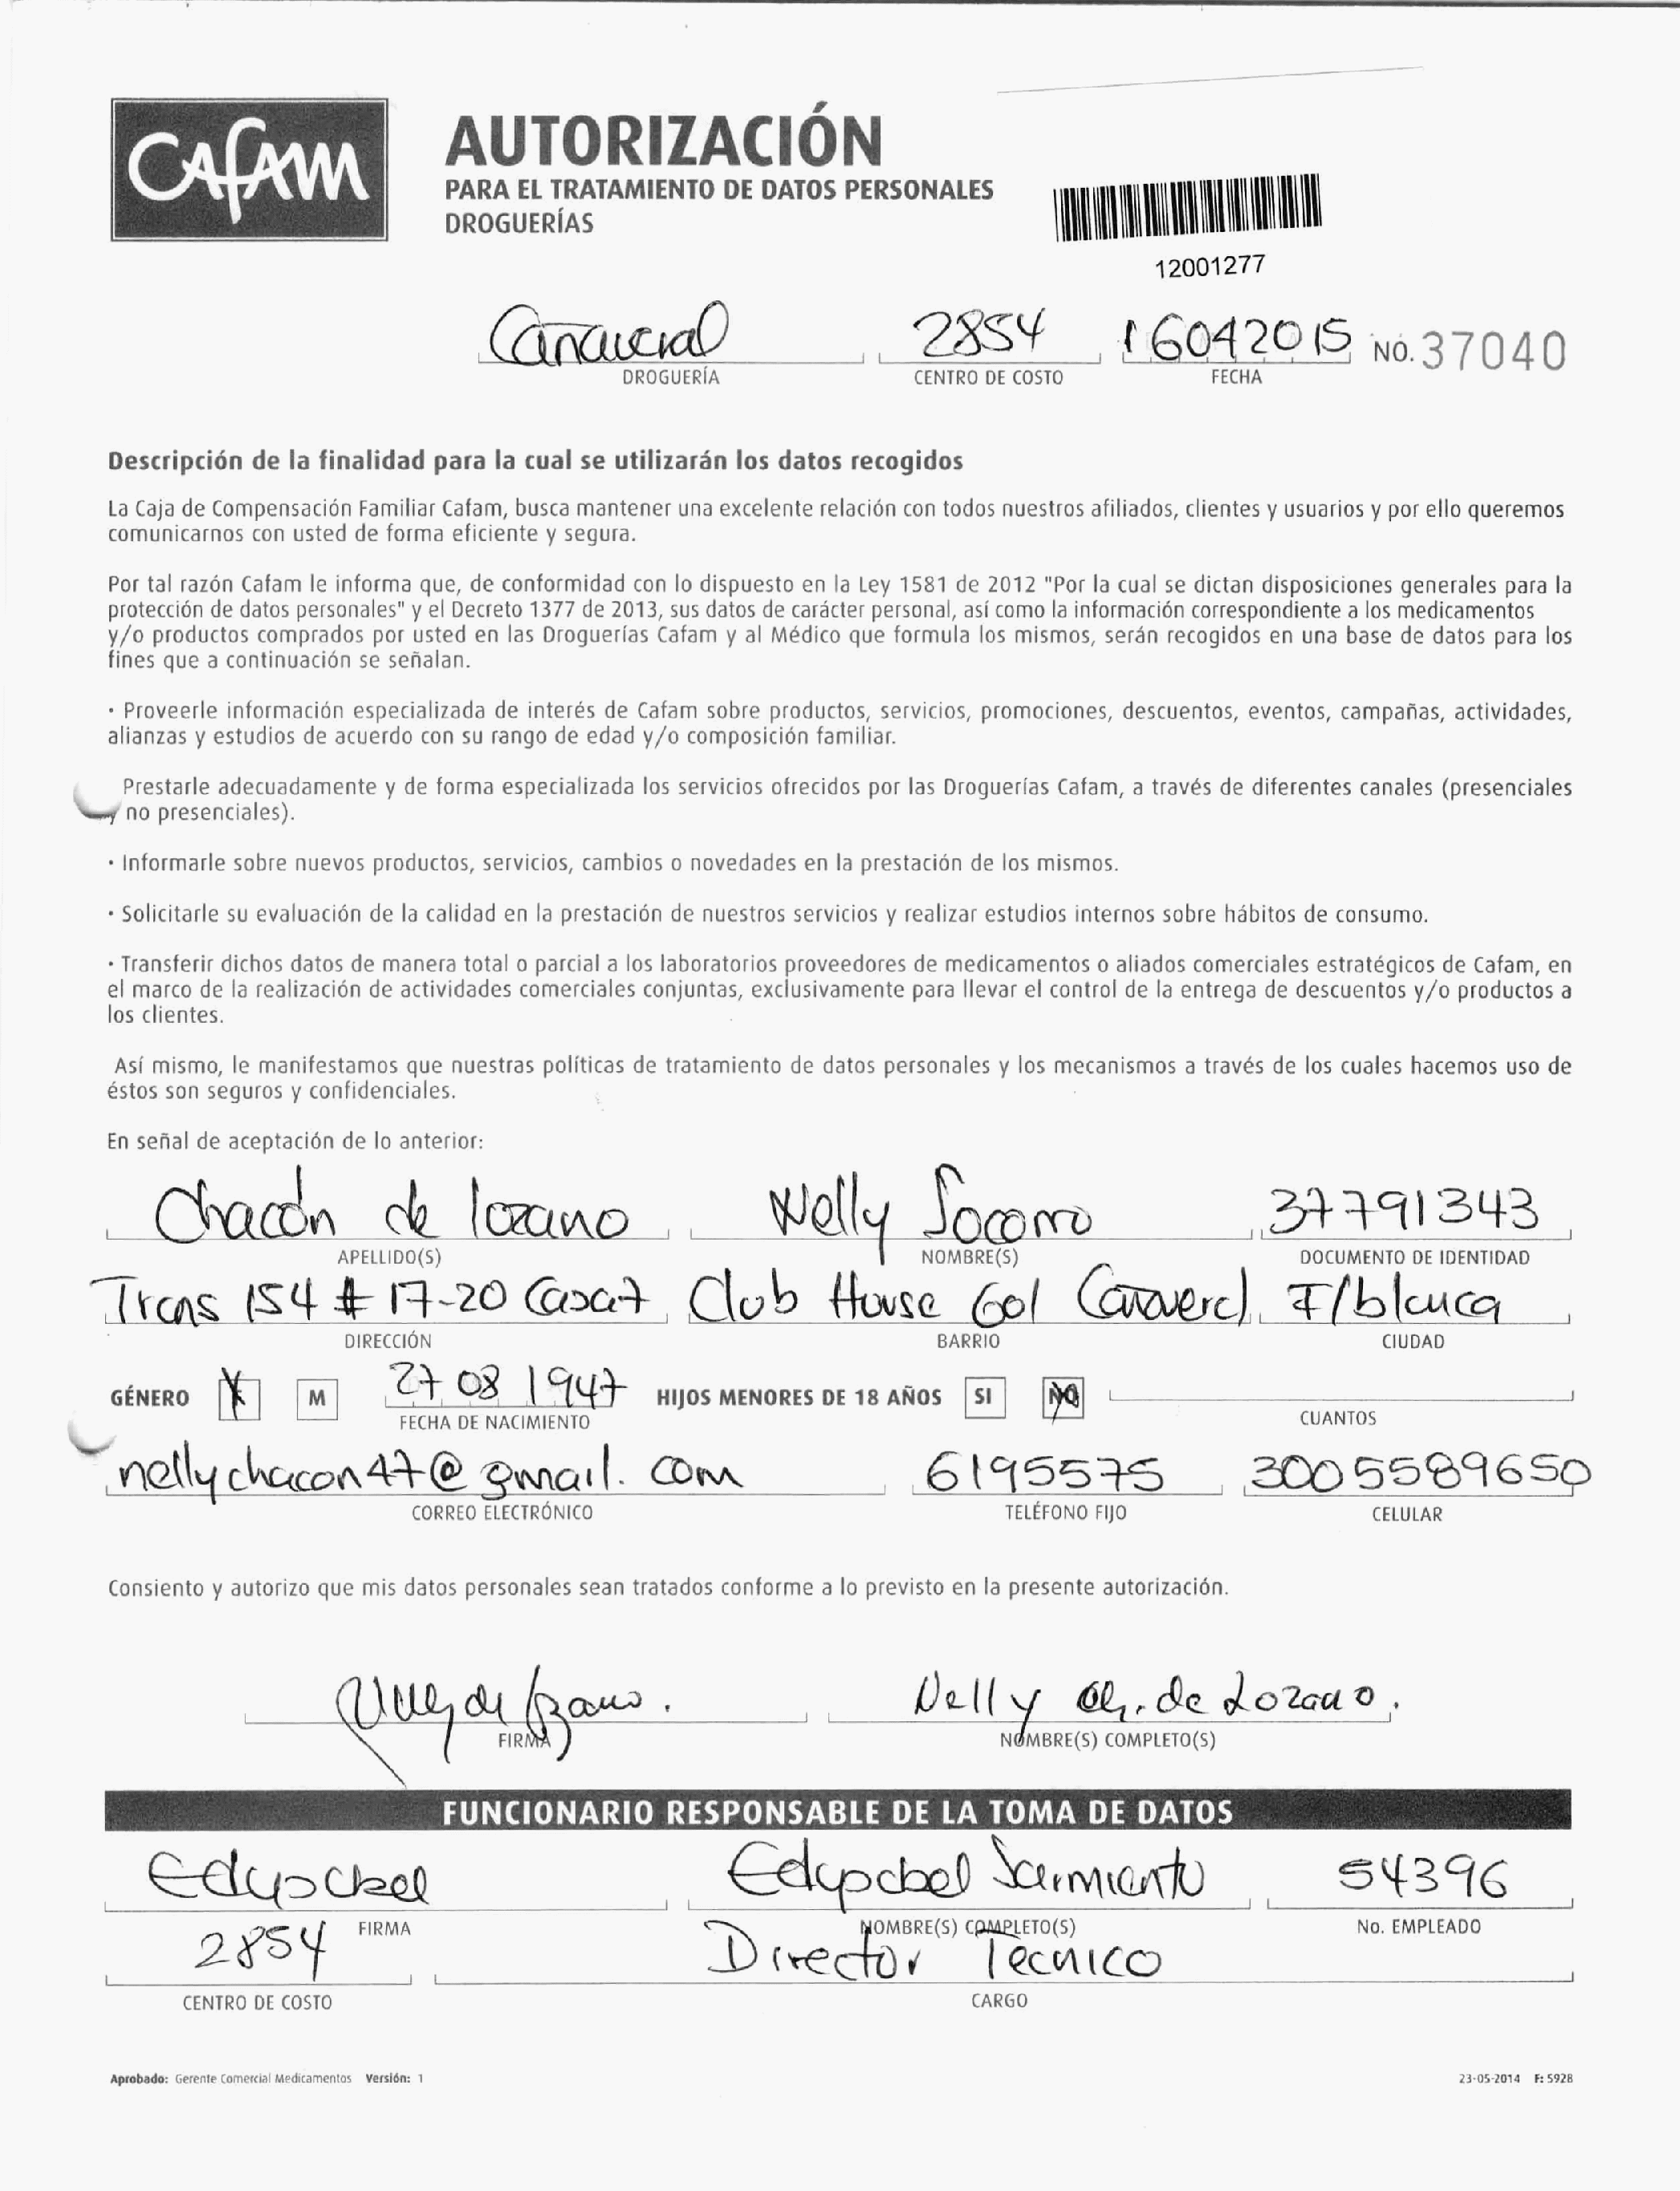 CAFAM
AUTORIZACIÓN
PARA EL TRATAMIENTO DE DATOS PERSONALES
DROGUERÍAS
12001277
Cañaveral 2854 16042015 NO. 37040
DROGUERÍA CENTRO DE COSTO FECHA
Descripción de la finalidad para la cual se utilizarán los datos recogidos
La Caja de Compensación Familiar Cafam, busca mantener una excelente relación con todos nuestros afiliados, clientes y usuarios y por ello queremos
comunicarnos con usted de forma eficiente y segura.
Por tal razón Cafam le informa que, de conformidad con lo dispuesto en la Ley 1581 de 2012 "Por la cual se dictan disposiciones generales para la
protección de datos personales" y el Decreto 1377 de 2013, sus datos de carácter personal, así como la información correspondiente a los medicamentos
y/o productos comprados por usted en las Droguerías Cafam y al Médico que formula los mismos, serán recogidos en una base de datos para los
fines que a continuación se señalan.
· Proveerle información especializada de interés de Cafam sobre productos, servicios, promociones, descuentos, eventos, campañas, actividades,
alianzas y estudios de acuerdo con su rango de edad y/o composición familiar.
Prestarle adecuadamente y de forma especializada los servicios ofrecidos por las Droguerías Cafam, a través de diferentes canales (presenciales
y no presenciales).
· Informarle sobre nuevos productos, servicios, cambios o novedades en la prestación de los mismos.
· Solicitarle su evaluación de la calidad en la prestación de nuestros servicios y realizar estudios internos sobre hábitos de consumo.
· Transferir dichos datos de manera total o parcial a los laboratorios proveedores de medicamentos o aliados comerciales estratégicos de Cafam, en
el marco de la realización de actividades comerciales conjuntas, exclusivamente para llevar el control de la entrega de descuentos y/o productos a
los clientes.
Así mismo, le manifestamos que nuestras políticas de tratamiento de datos personales y los mecanismos a través de los cuales hacemos uso de
éstos son seguros y confidenciales.
En señal de aceptación de lo anterior:
Chacón de lozano Nelly Socorro 37791343
APELLIDO(S) NOMBRE(S) DOCUMENTO DE IDENTIDAD
Trans 154 # 17-20 Casa 7 Club House Gol Cañaveral F/blanca
DIRECCIÓN BARRIO CIUDAD
GÉNERO X M 27 08 1947 HIJOS MENORES DE 18 AÑOS SI NO
FECHA DE NACIMIENTO CUANTOS
nellychacon47@gmail.com 6195575 3005589650
CORREO ELECTRÓNICO TELÉFONO FIJO CELULAR
Consiento y autorizo que mis datos personales sean tratados conforme a lo previsto en la presente autorización.
Nelly de Lozano. Nelly Ch. de Lozano.
FIRMA NOMBRE(S) COMPLETO(S)
FUNCIONARIO RESPONSABLE DE LA TOMA DE DATOS
Sarmiento 54396
FIRMA NOMBRE(S) COMPLETO(S) No. EMPLEADO
2854 Director Tecnico
CENTRO DE COSTO CARGO
Aprobado: Gerente Comercial Medicamentos Versión: 1 23-05-2014 F: 5928